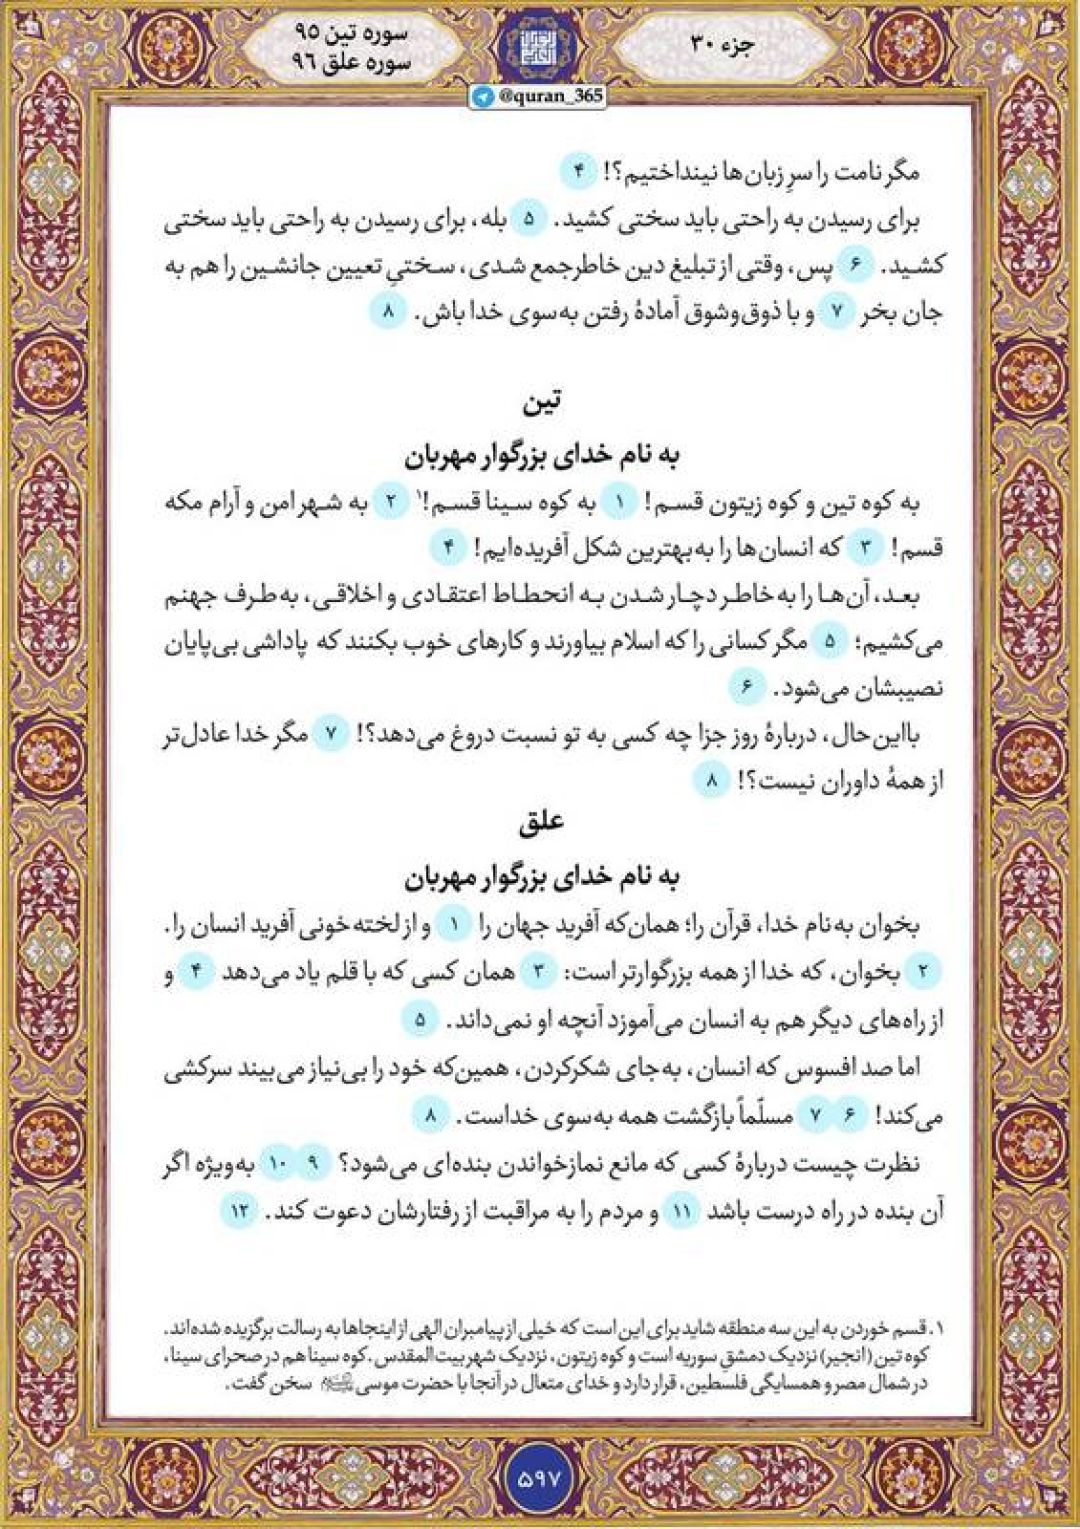 جزء ۳۰
سوره تین ۹۵
سوره علق ۹۶
@quran_365
مگر نامت را سرِ زبان‌ها نینداختیم؟! ۴
برای رسیدن به راحتی باید سختی کشید. ۵ بله، برای رسیدن به راحتی باید سختی
کشید. ۶ پس، وقتی از تبلیغ دین خاطرجمع شدی، سختیِ تعیین جانشین را هم به
جان بخر ۷ و با ذوق‌وشوق آمادهٔ رفتن به‌سوی خدا باش. ۸
تین
به نام خدای بزرگوار مهربان
به کوه تین و کوه زیتون قسم! ۱ به کوه سینا قسم!۱ ۲ به شهر امن و آرام مکه
قسم! ۳ که انسان‌ها را به‌بهترین شکل آفریده‌ایم! ۴
بعد، آن‌ها را به‌خاطر دچار شدن به انحطاط اعتقادی و اخلاقی، به‌طرف جهنم
می‌کشیم؛ ۵ مگر کسانی را که اسلام بیاورند و کارهای خوب بکنند که پاداشی بی‌پایان
نصیبشان می‌شود. ۶
بااین‌حال، دربارهٔ روز جزا چه کسی به تو نسبت دروغ می‌دهد؟! ۷ مگر خدا عادل‌تر
از همهٔ داوران نیست؟! ۸
علق
به نام خدای بزرگوار مهربان
بخوان به‌نام خدا، قرآن را؛ همان‌که آفرید جهان را ۱ و از لخته‌خونی آفرید انسان را.
۲ بخوان، که خدا از همه بزرگوارتر است: ۳ همان کسی که با قلم یاد می‌دهد ۴ و
از راه‌های دیگر هم به انسان می‌آموزد آنچه او نمی‌داند. ۵
اما صد افسوس که انسان، به‌جای شکرکردن، همین‌که خود را بی‌نیاز می‌بیند سرکشی
می‌کند! ۶ ۷ مسلّماً بازگشت همه به‌سوی خداست. ۸
نظرت چیست دربارهٔ کسی که مانع نمازخواندن بنده‌ای می‌شود؟ ۹ ۱۰ به‌ویژه اگر
آن بنده در راه درست باشد ۱۱ و مردم را به مراقبت از رفتارشان دعوت کند. ۱۲
۱. قسم خوردن به این سه منطقه شاید برای این است که خیلی از پیامبران الهی از اینجاها به رسالت برگزیده شده‌اند.
کوه تین (انجیر) نزدیک دمشقِ سوریه است و کوه زیتون، نزدیک شهر بیت‌المقدس. کوه سینا هم در صحرای سینا،
در شمال مصر و همسایگی فلسطین، قرار دارد و خدای متعال در آنجا با حضرت موسی سخن گفت.
۵۹۷